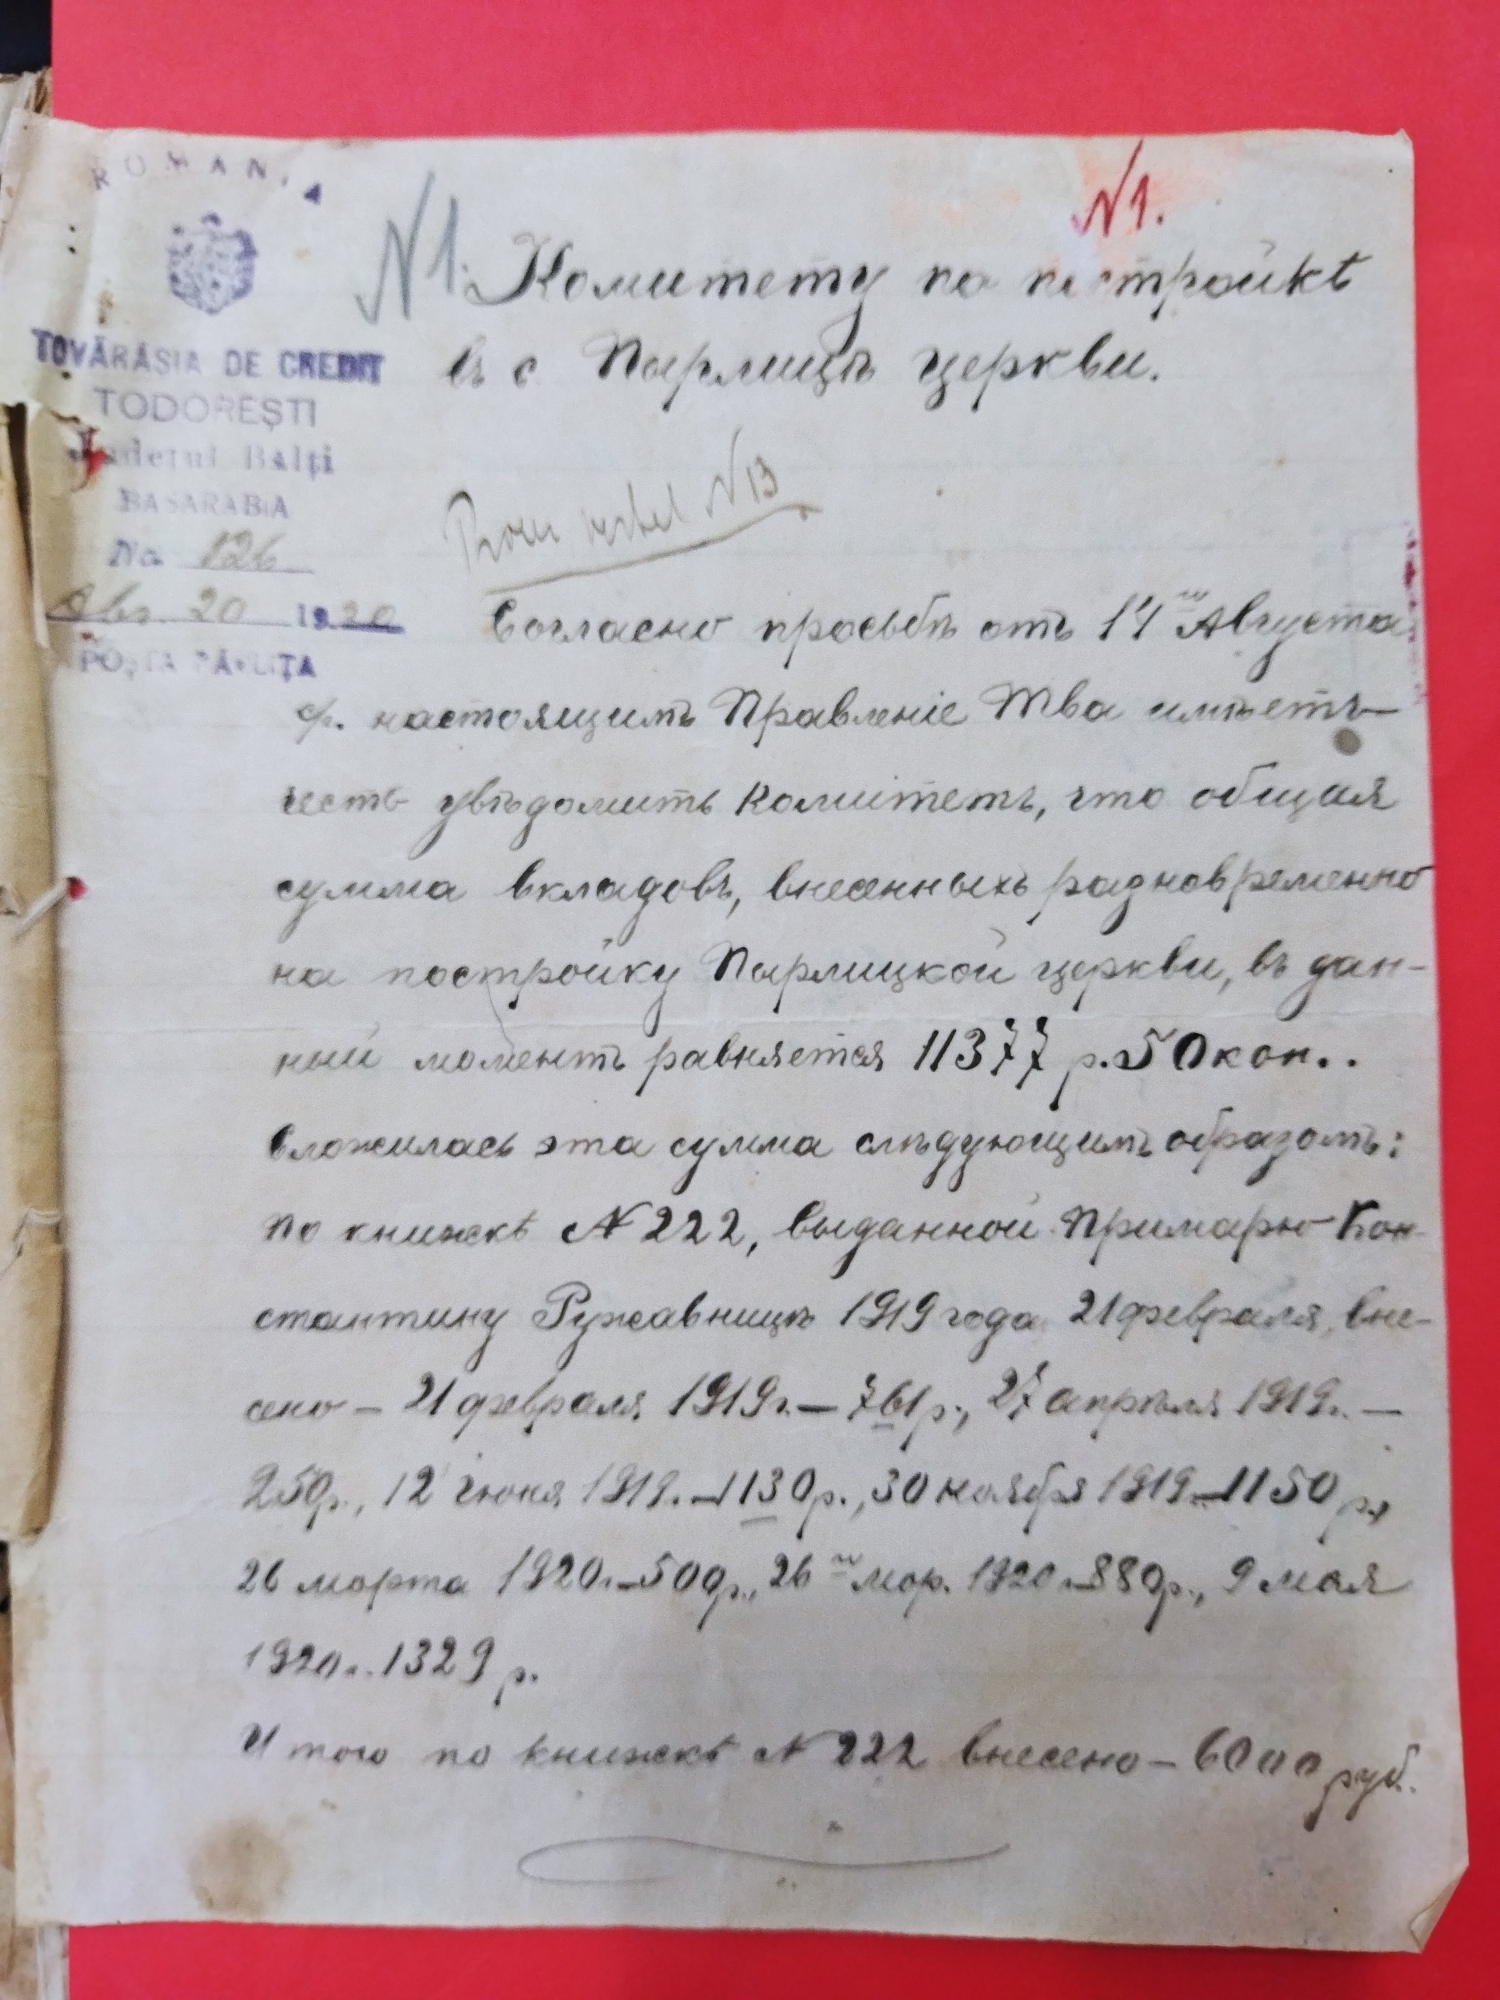 ROMANIA
TOVĂRĂSIA DE CREDIT
TODOREȘTI
Județul Balți
BASARABIA
No 126
Авг. 20 1920
POȘTA PÂRLIȚA
N1.
N1.
Комитету по постройкѣ
въ с Пырлицѣ церкви.
N 13
Согласно просьбѣ отъ 14го Августа
с/г. настоящимъ Правленіе Тва имѣетъ
честь увѣдомить Комитетъ, что общая
сумма вкладовъ, внесенныхъ разновременно
на постройку Пырлицкой церкви, въ дан-
ный моментъ равняется 11377 р. 50 коп..
Сложилась эта сумма слѣдующимъ образомъ:
По книжкѣ N 222, выданной Примарю Кон-
стантину Ружавницѣ 1919 года 21 февраля, вне-
сено – 21 февраля 1919г. – 761р., 27 апрѣля 1919г. –
250р., 12 Іюня 1919г. – 1130р., 30 ноября 1919г. – 1150 р.,
26 марта 1920г. – 500р., 26го мар. 1920г. – 880р., 9 мая
1920г. 1329 р.
Итого по книжкѣ N 222 внесено – 6000 руб.